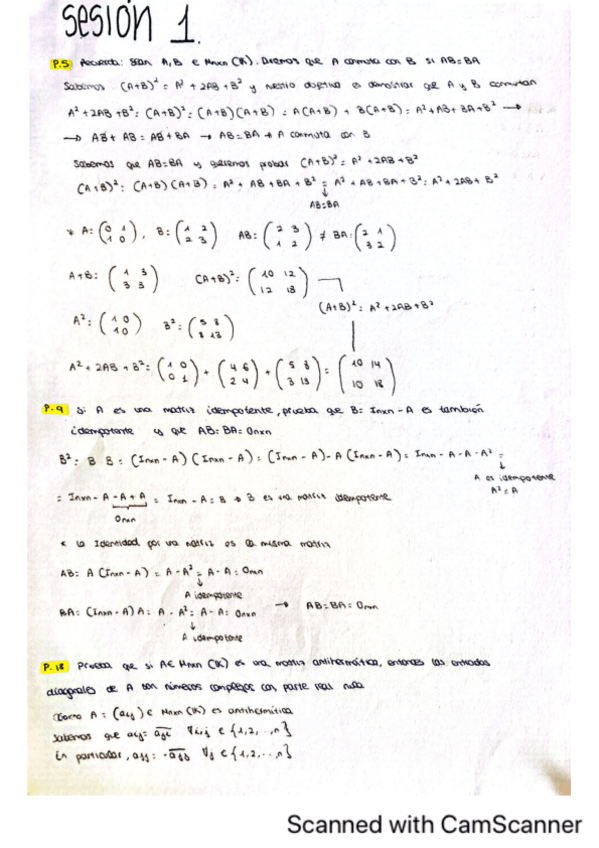 sesión 1.
P.5 Recuerda: Sean A, B ∈ Mnxn (K). Diremos que A conmuta con B si AB=BA
Sabemos (A+B)² = A² + 2AB + B² y nuestro objetivo es demostrar que A y B conmutan
A² + 2AB + B² = (A+B)² = (A+B)(A+B) = A(A+B) + B(A+B) = A² + AB + BA + B² →
→ AB + AB = AB + BA → AB = BA → A conmuta con B
Sabemos que AB=BA y queremos probar (A+B)² = A² + 2AB + B²
(A+B)² = (A+B)(A+B) = A² + AB + BA + B² = A² + AB + AB + B² = A² + 2AB + B²
↓
AB=BA
* A: (0 1 / 1 0), B: (1 2 / 2 3) AB: (2 3 / 1 2) ≠ BA: (2 1 / 3 2)
A+B: (1 3 / 3 3) (A+B)²: (10 12 / 12 18)
(A+B)² ≠ A² + 2AB + B²
A²: (1 0 / 1 0) B²: (5 8 / 8 13)
A² + 2AB + B²: (1 0 / 0 1) + (4 6 / 2 4) + (5 8 / 8 13) = (10 14 / 10 18)
P.9 Si A es una matriz idempotente, prueba que B = Inxn - A es también
idempotente y que AB = BA = Onxn
B² = B B = (Inxn - A)(Inxn - A) = (Inxn - A) - A (Inxn - A) = Inxn - A - A - A² =
↓
A es idempotente
A² = A
= Inxn - A - A + A = Inxn - A = B → B es una matriz idempotente
Onxn
* La Identidad por una matriz es la misma matriz
AB = A (Inxn - A) = A - A² = A - A = Onxn
↓
A idempotente
BA = (Inxn - A) A = A - A² = A - A = Onxn → AB = BA = Onxn
↓
A idempotente
P.18 Prueba que si A ∈ Mnxn (K) es una matriz antihermítica, entonces las entradas
diagonales de A son números complejos con parte real nula
Como A = (aij) ∈ Mnxn (K) es antihermítica
Sabemos que aij = a̅j̅i̅ ∀i,j ∈ {1,2,...,n}
En particular, ajj = -a̅j̅j̅ ∀j ∈ {1,2,...,n}
Scanned with CamScanner